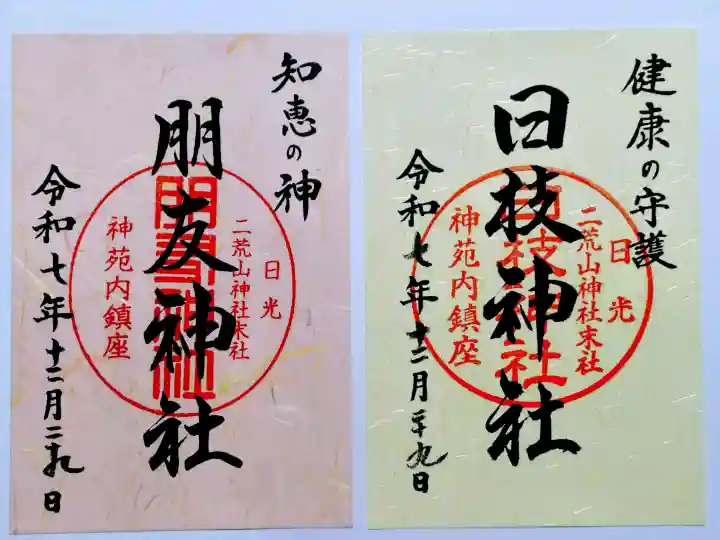 健康の守護
日枝神社
日光
二荒山神社末社
神苑内鎮座
令和七年十二月二十九日
知恵の神
朋友神社
日光
二荒山神社末社
神苑内鎮座
令和七年十二月二十九日